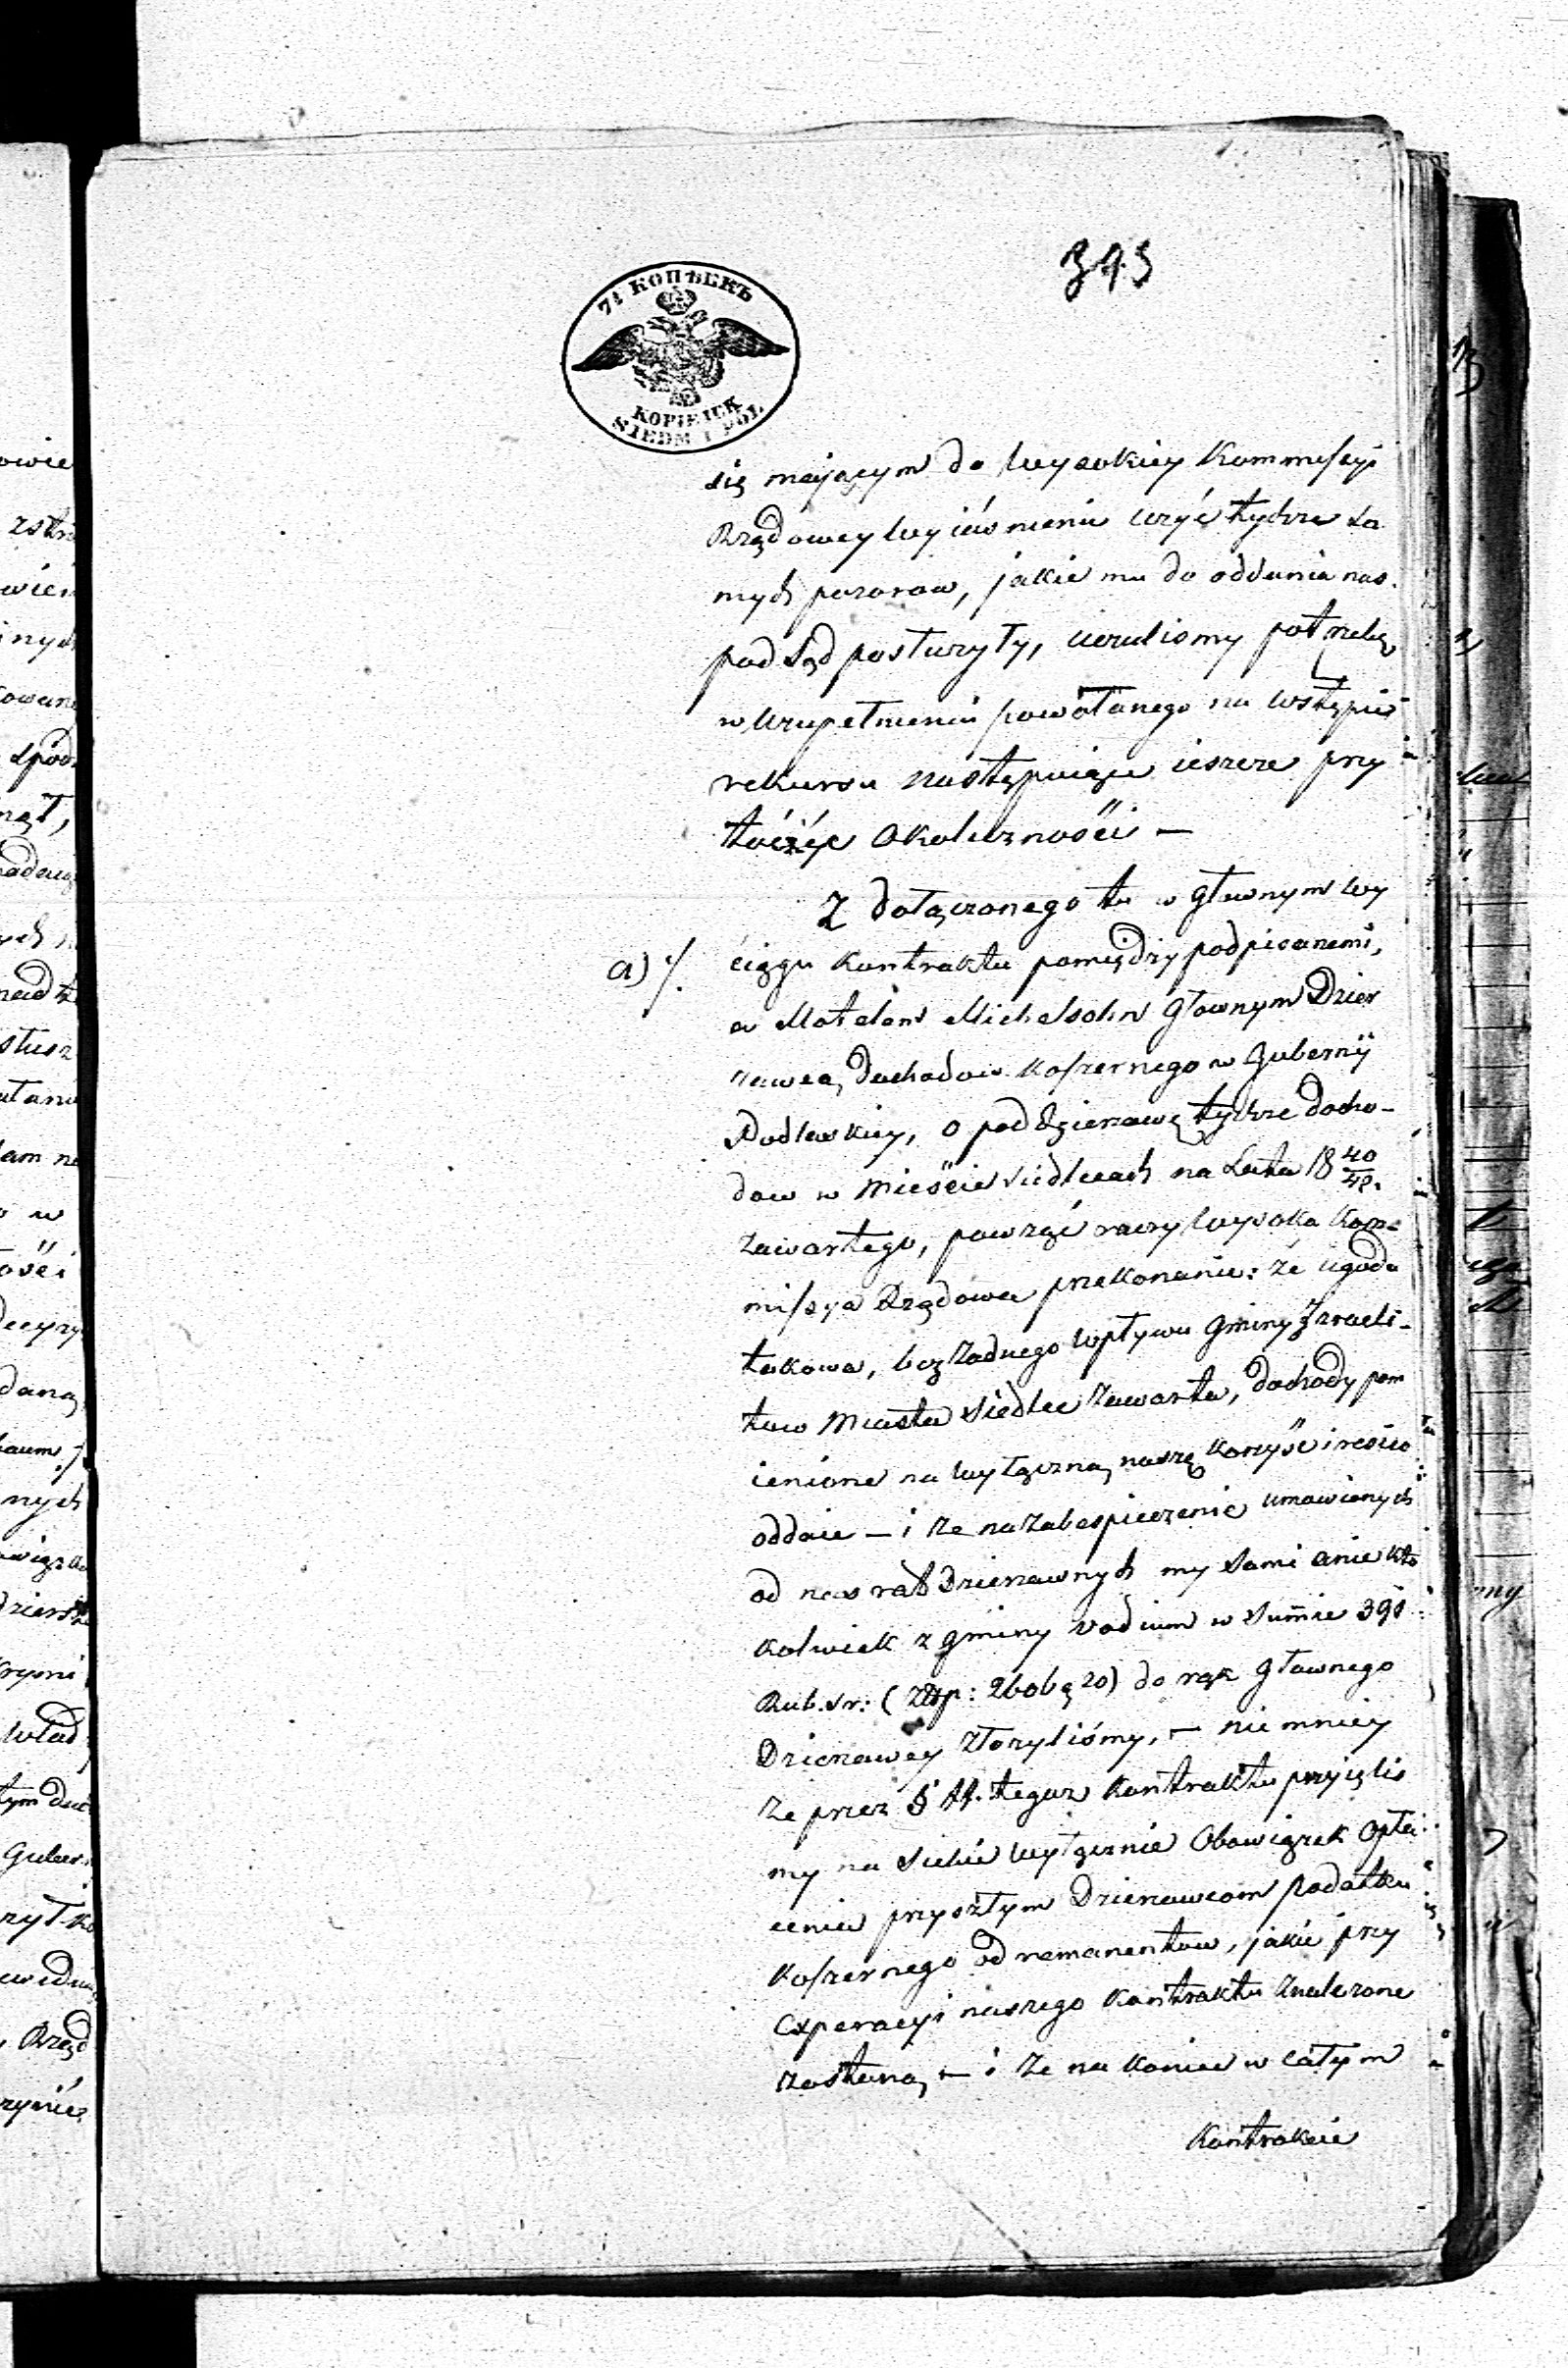 345
7½ КОПѢЕКЪ
KOPIEIEK
SIEDM I PÓŁ
się maiącym do Wysokiey Kommissyi
Rządowey wyiaśnieniu użyć tychże sa
mych pozorow, jakie mu do oddania nas
pod Sąd posłużyły, uznaliśmy potrzebę
w uzupełnieniu powołanego na wstępie
rekursu następuiące ieszcze przy
toczyć Okoliczności —
Z dołączonego tu w głownym wy
a) ⁒ ciągu Kontraktu pomiędzy podpisanemi,
a Motelem Michelsohn Głownym Dzier
zawcą dochodow Koszernego w Gubernij
Podlaskiey, o poddzierzawę tychże docho-
dow w Mieście Siedlcach na Lata 18 40/42.
zawartego, powziąć raczy Wysoka Kom-
missya Rządowa przekonanie: że ugoda
takowa, bez żadnego wpływu Gminy Izraeli-
tow Miasta Siedlec zawarta, dochody pom
ienione na wyłączną naszą korzyść i resico
oddaie — i że na zabespieczenie umowionych
od nas rat Dzierzawnych my sami a nie kto
kolwiek z gminy vadium w Summie 391
Rub. sr: (Złp: 2606 g 20) do rąk Głownego
Dzierzawcy złozyliśmy, — nie mniey
że przez § 11. tegoz Kontraktu przyięliś
my na siebie wyłącznie Obowiązek Opła
cenia przyszłym Dzierzawcom podatku
Koszernego od remanentow, jakie przy
Experacyi naszego Kontraktu znalezione
zostaną, — i że na koniec w całym
Kontrakcie